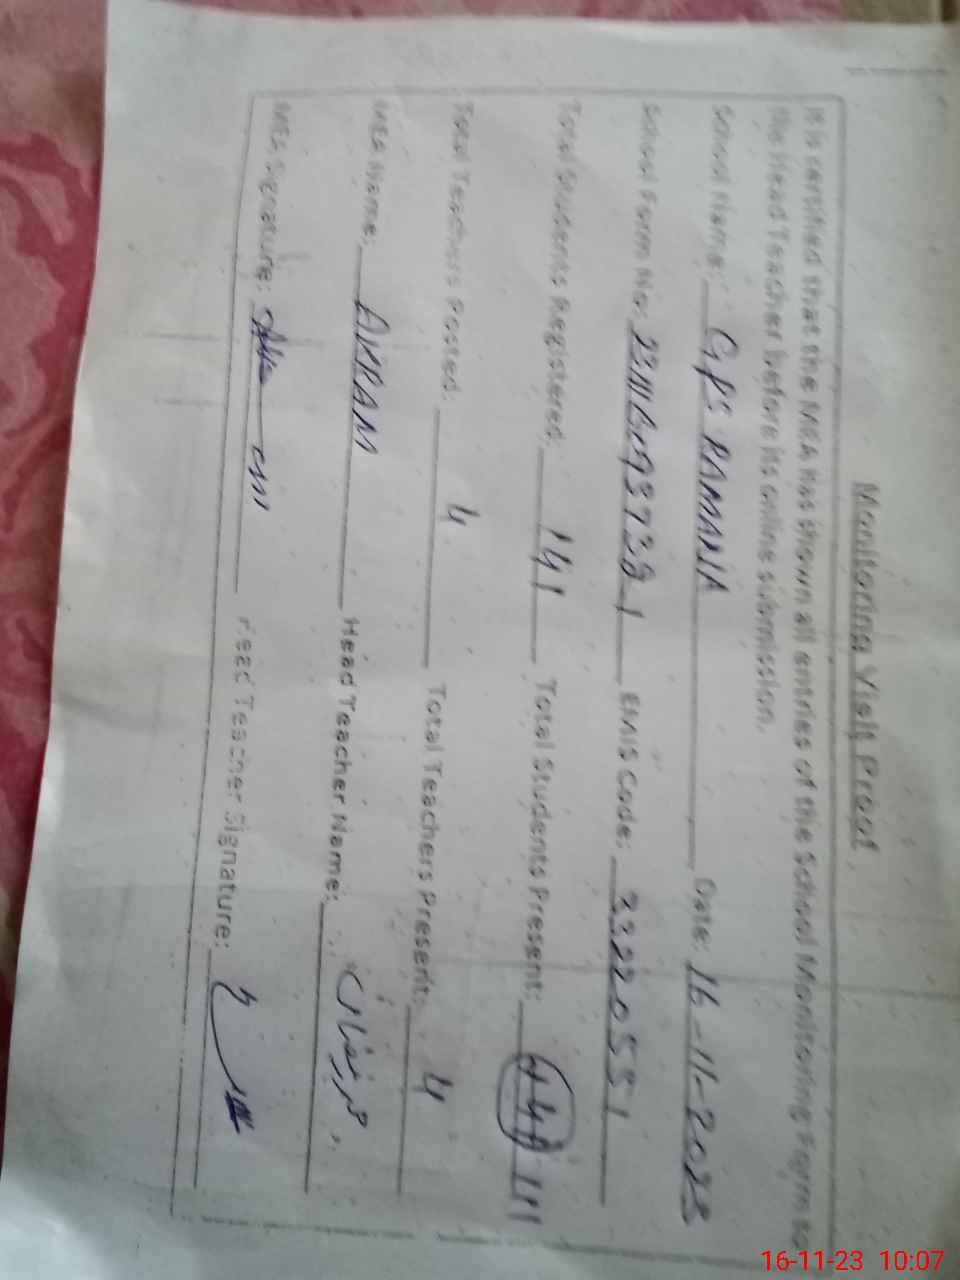 Monitoring Visit Proof
It is certified that the MEA has shown all entries of the School Monitoring Form to
the Head Teacher before its online submission.
School Name: GPS RAMANA Date: 16-11-2023
School Form No: EMIS Code: 33220551
Total Students Registered: 141 Total Students Present: 111
Total Teachers Posted: 4 Total Teachers Present: 4
MEA Name: AKRAM Head Teacher Name:
MEA Signature: Head Teacher Signature:
16-11-23 10:07